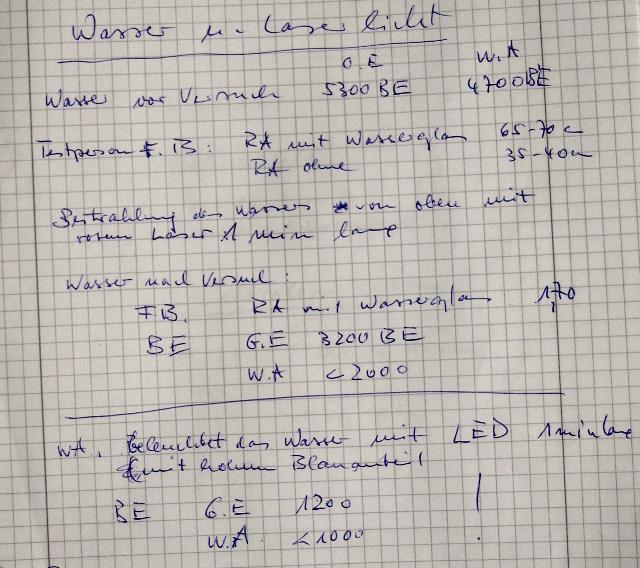 Wasser u. Laserlicht
G.E W.A
Wasser vor Versuch 5300 BE 4700 BE
Testperson F.B: RA mit Wasserglas 65-70 c
RA ohne 35-40cm
Bestrahlung des Wassers von oben mit
rotem Laser 1 min lang
Wasser nach Versuch:
F.B. RA mit Wasserglas 170
BE G.E 3200 BE
W.A <2000
W.A. Beleuchtet das Wasser mit LED 1 min lang
(mit hohem Blauanteil
BE G.E 1200
W.A <1000 !